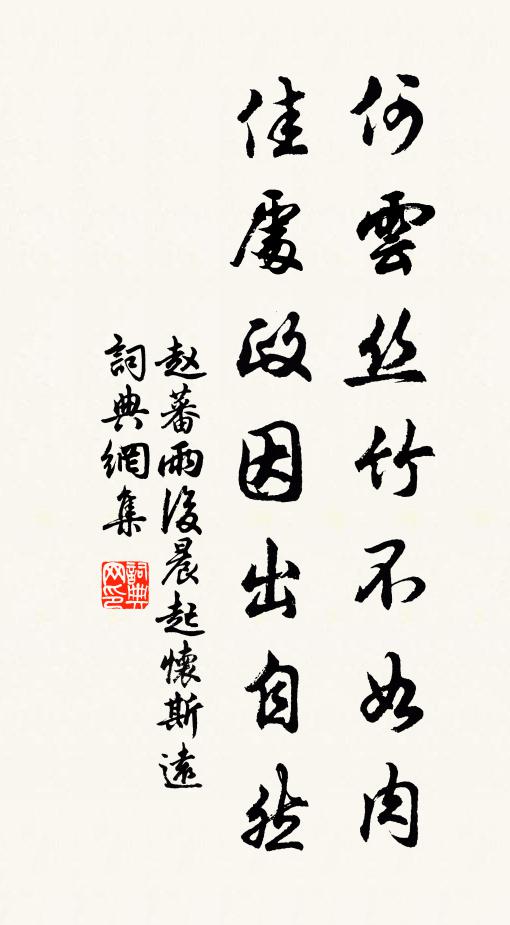 何雲丝竹不如肉
佳處政因出自然
赵蕃雨後晨起懷斯遠
詞典網集
詞典网印